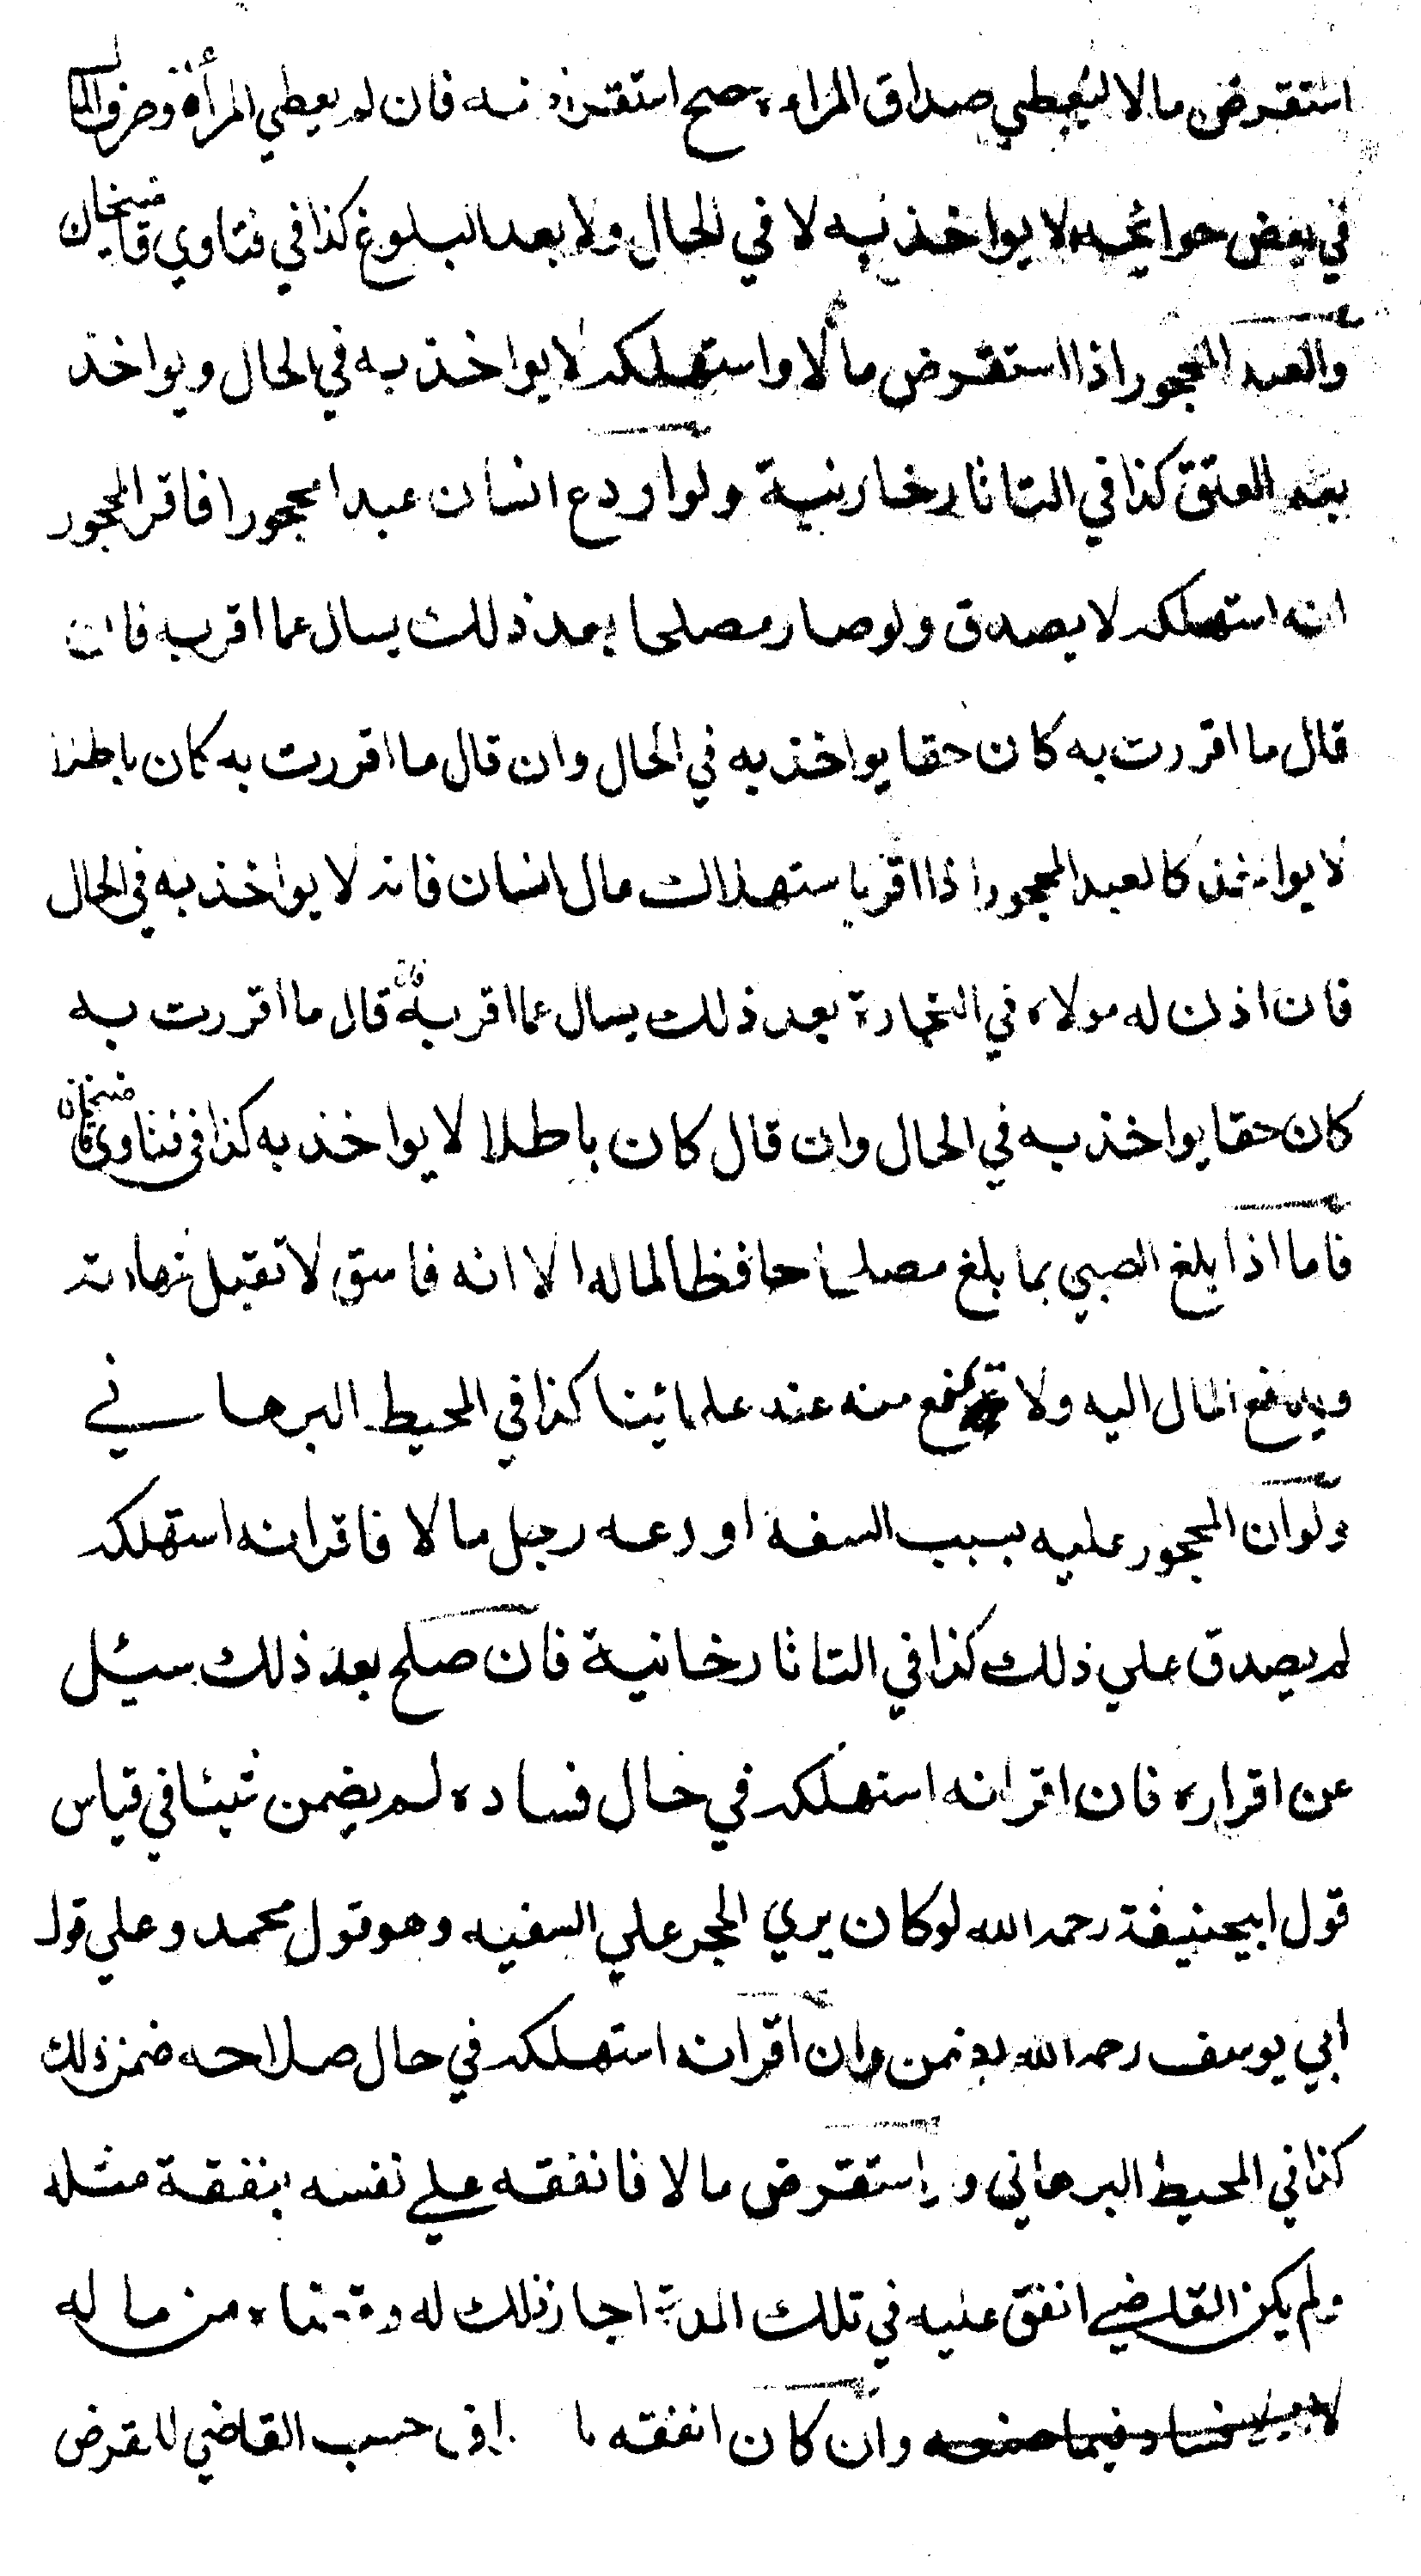 استقرض مالا ليعطي صداق المراة صح استقراضه فان لم يعطي المرأة وصرف المال
في بعض حوائجه لا يواخذ به لا في الحال ولا بعد البلوغ كذا في فتاوي قاضيخان
والعبد المحجور اذا استقرض مالا واستهلكه لا يواخذ به في الحال ويواخذ
بعد العتق كذا في التاتارخانية ولو اودع انسان عبدا محجورا فاقر المحجور
انه استهلكه لا يصدق ولو صار مصلحا بعد ذلك يسال عما اقر به فان
قال ما اقررت به كان حقا يواخذ به في الحال وان قال ما اقررت به كان باطلا
لا يواخذ كالعبد المحجور اذا اقر باستهلاك مال انسان فانه لا يواخذ به في الحال
فان اذن له مولاه في التجارة بعد ذلك يسال عما اقر به فان قال ما اقررت به
كان حقا يواخذ به في الحال وان قال كان باطلا لا يواخذ به كذا في فتاوي قاضيخان
فاما اذا بلغ الصبي بما بلغ مصلحا حافظا لماله الا انه فاسق لا تقبل شهادته
ويدفع المال اليه ولا يمنع منه عند علمائينا كذا في المحيط البرهاني
ولو ان المحجور عليه بسبب السفه اودعه رجل مالا فاقر انه استهلكه
لم يصدق علي ذلك كذا في التاتارخانية فان صلح بعد ذلك سيئل
عن اقراره فان اقر انه استهلكه في حال فساده لم يضمن شيئا في قياس
قول ابيحنيفة رحمه الله لو كان يري الحجر علي السفيه وهو قول محمد وعلي قول
ابي يوسف رحمه الله يضمن وان اقر انه استهلكه في حال صلاحه ضمن ذلك
كذا في المحيط البرهاني و استقرض مالا فانفقه علي نفسه بنفقة مثله
ولم يكن القاضي انفق عليه في تلك المدة اجاز ذلك له وقضاه من ماله
لا فساد فيما صنعه وان كان انفقه حسب القاضي للمقرض